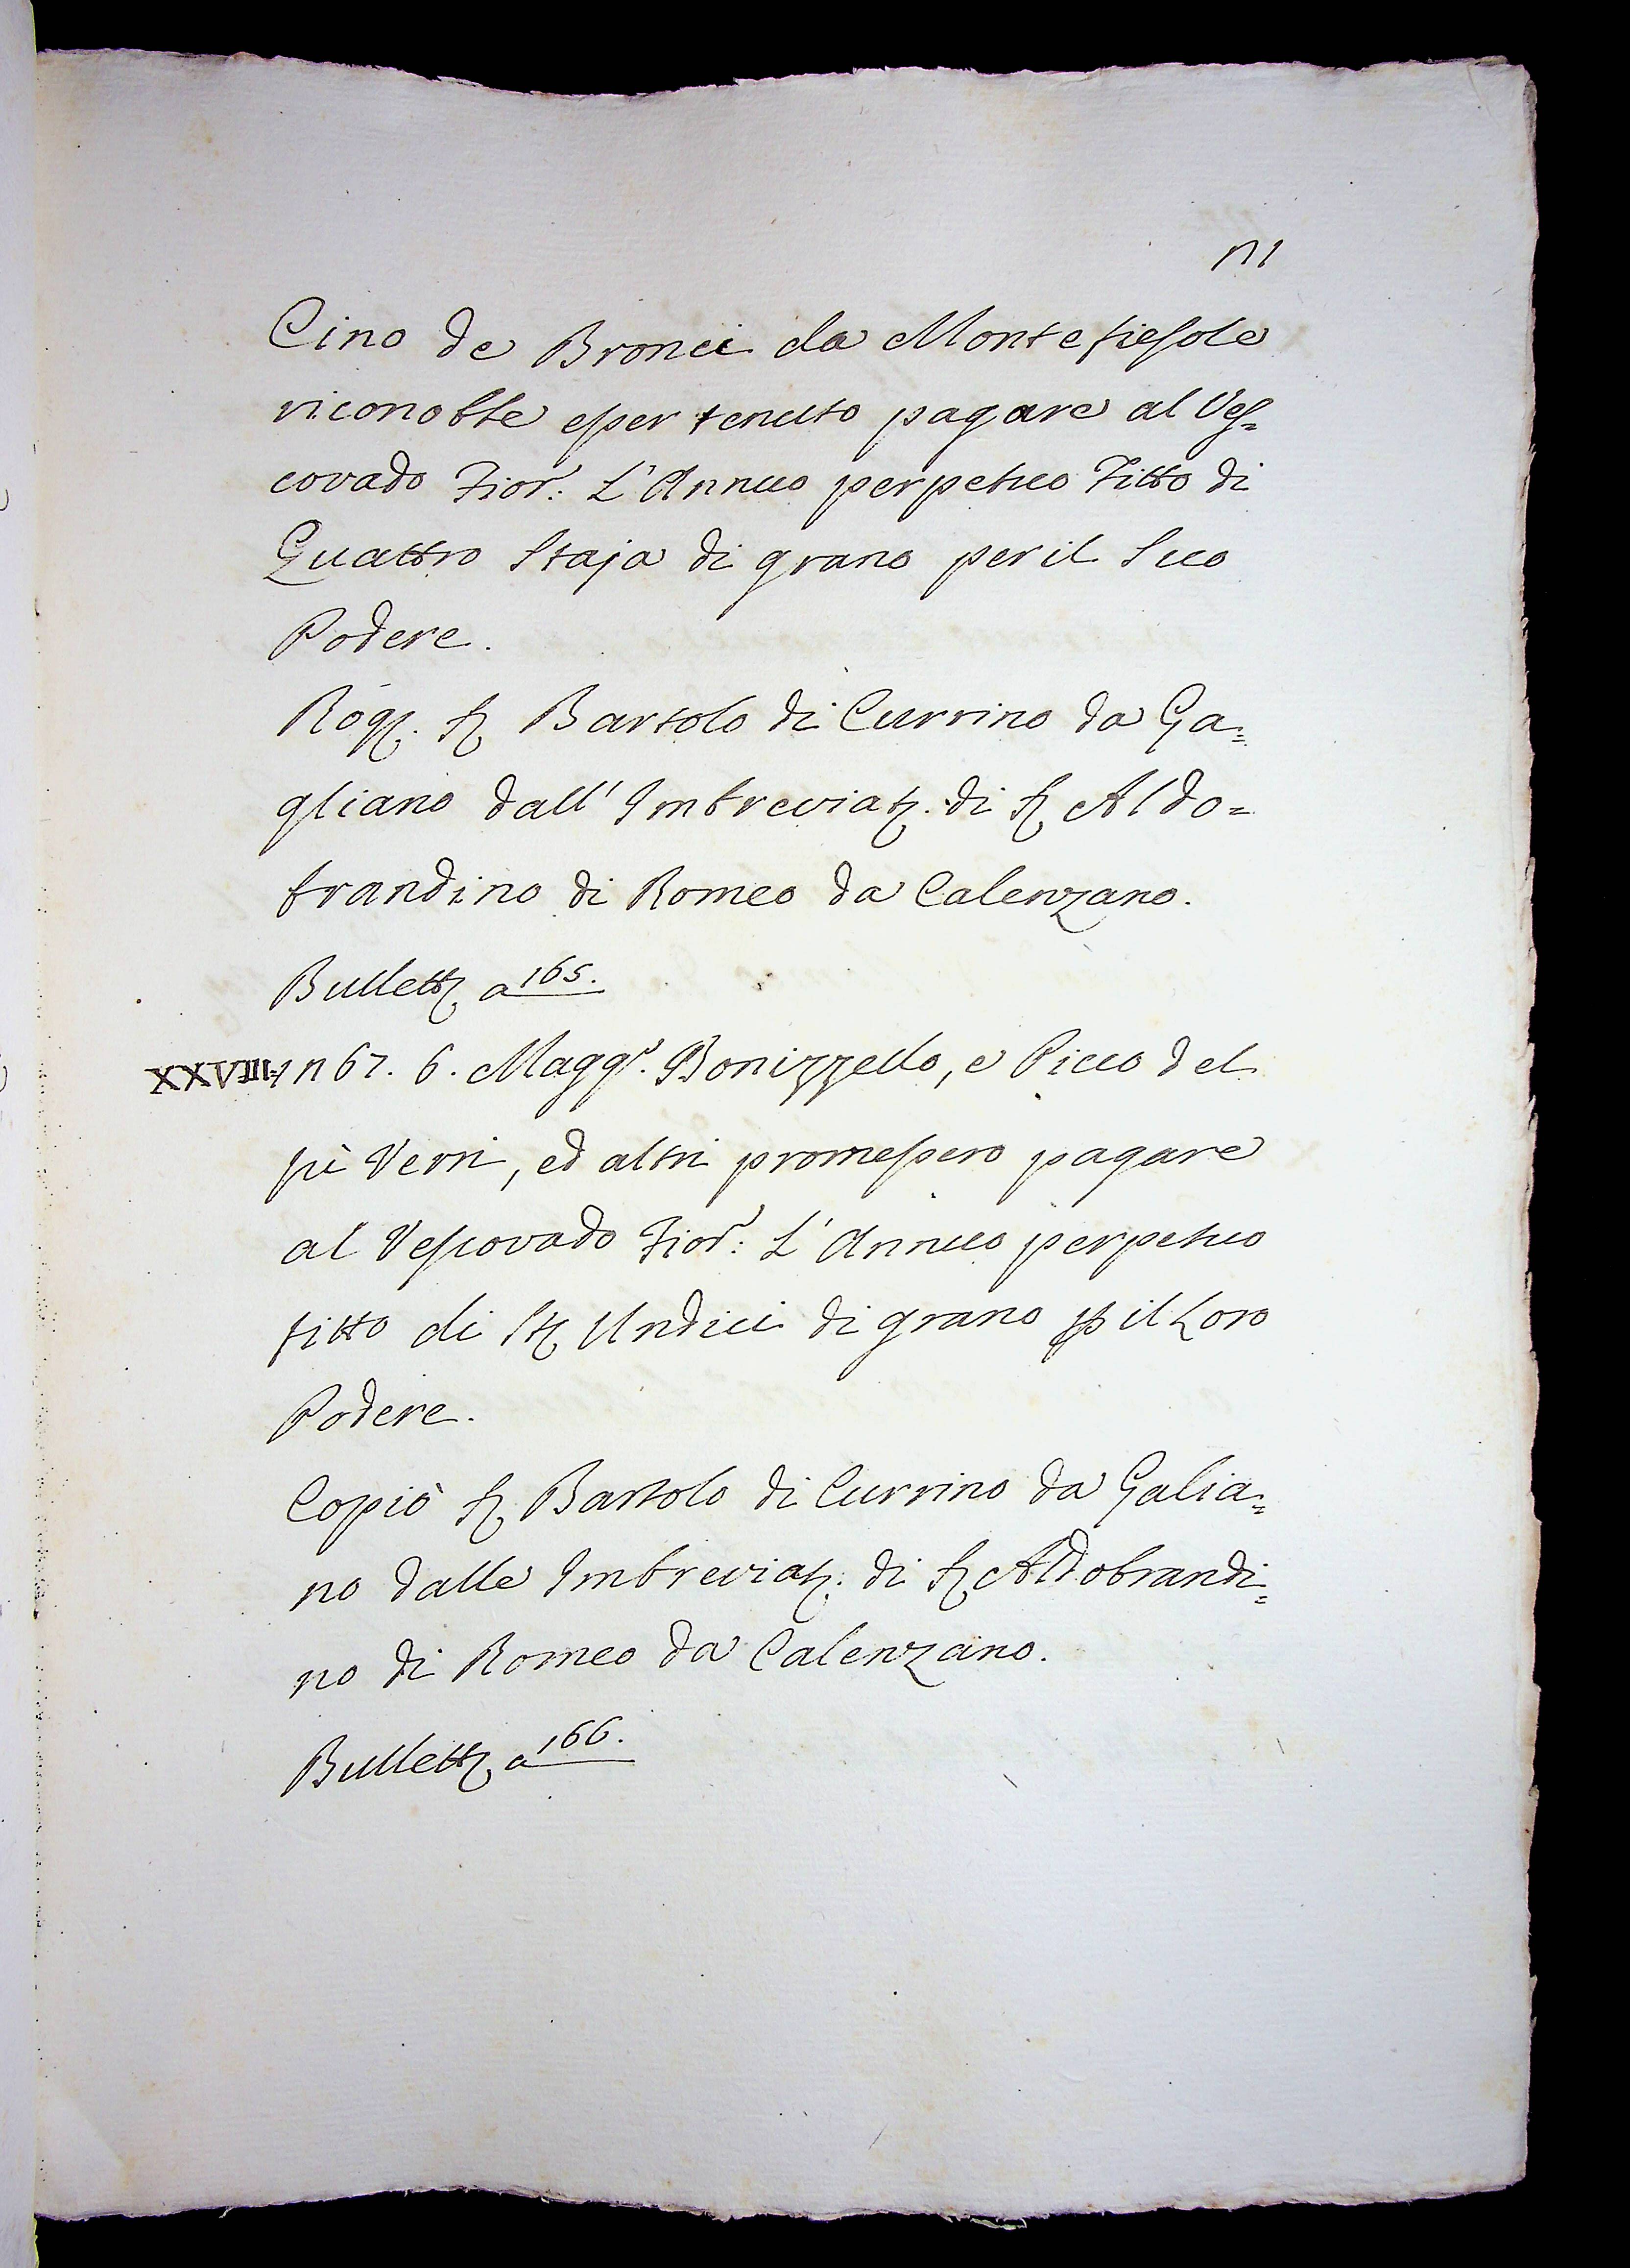 171
Cino de Bronci da Montefiesole
riconobbe esser tenuto pagare al Ves=
covado Fior: L'Annuo perpetuo Fitto di
Quattro Staja di grano per il Suo
Podere.
Rog. S. Bartolo di Currino da Ga=
gliano dall' Imbreviat. di S. Aldo=
brandino di Romeo da Calenzano.
Bullett. a 165.
XXVIII. 1167. 6. Magg. Bonizzello, e Picco del
fù Verri, ed altri promessero pagare
al Vescovado Fior: L'Annuo perpetuo
fitto di St. Undici di grano p il Loro
Podere.
Copiò S. Bartolo di Currino da Galia=
no dalle Imbreviat. di S. Aldobrandi=
no di Romeo da Calenzano.
Bullett. a 166.